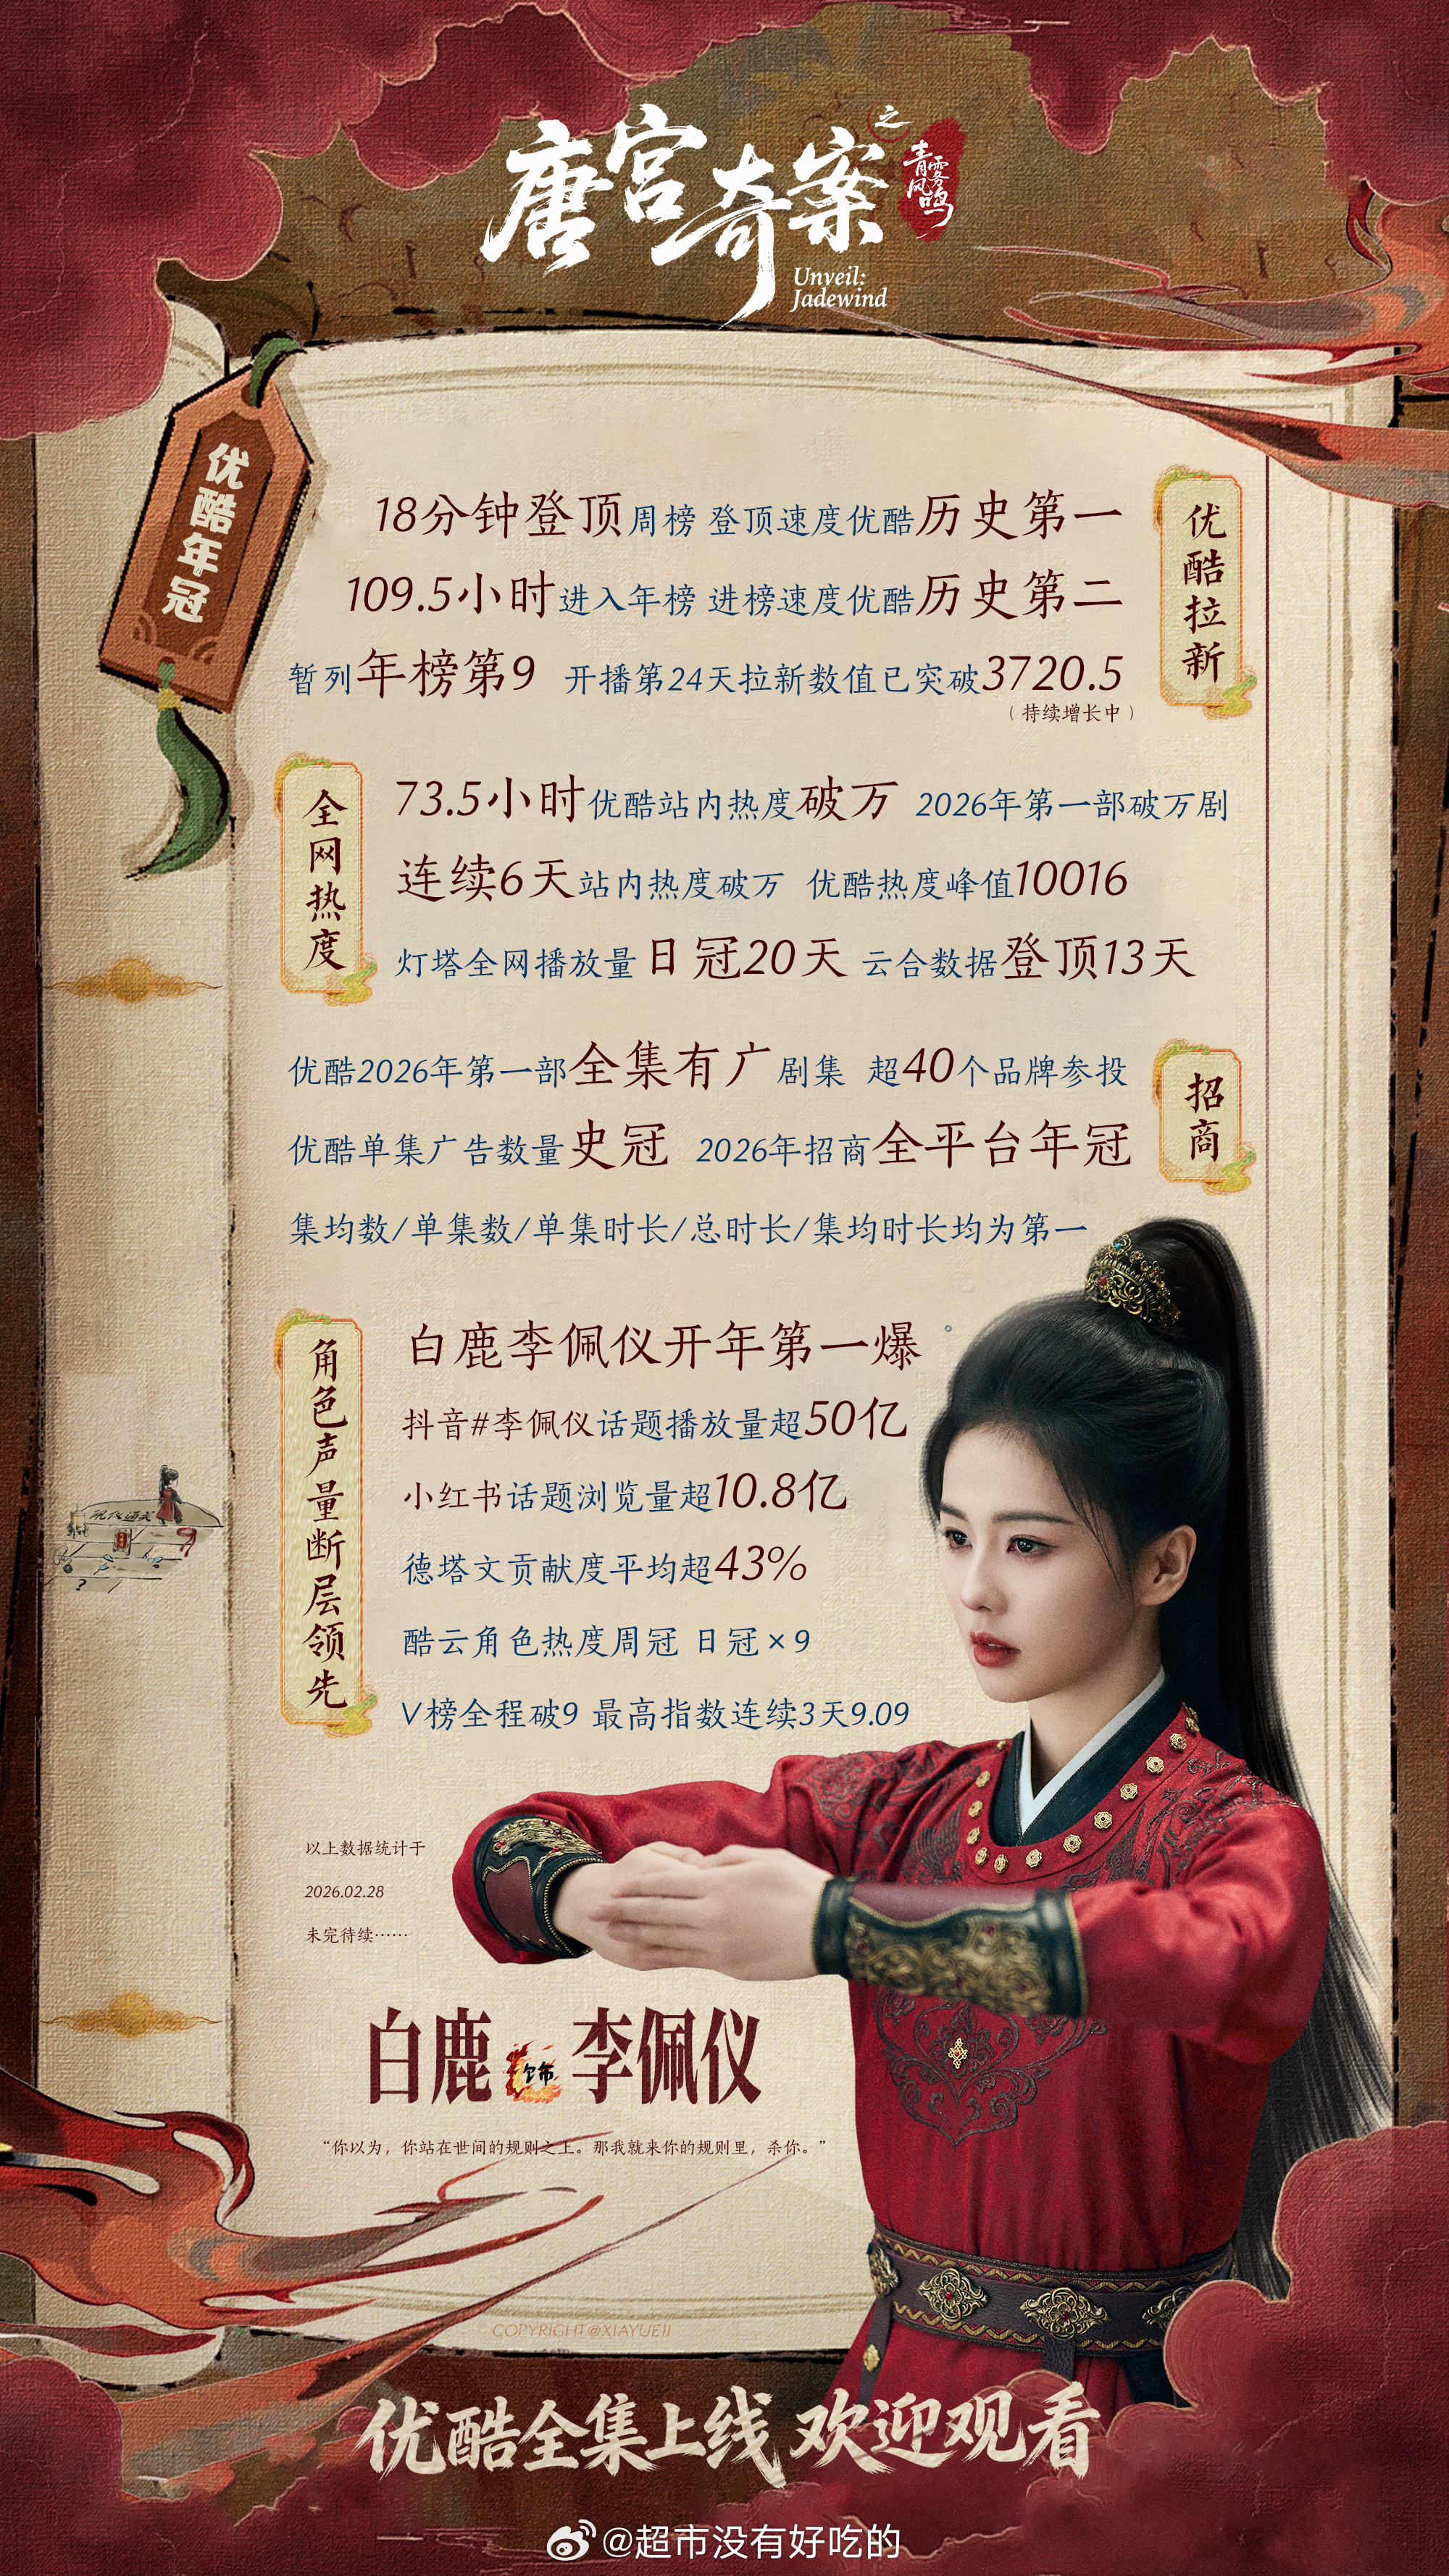 唐宫奇案
之
青雾风鸣
Unveil:
Jadewind
优酷年冠
优酷拉新
18分钟登顶周榜 登顶速度优酷历史第一
109.5小时进入年榜 进榜速度优酷历史第二
暂列年榜第9 开播第24天拉新数值已突破3720.5
（持续增长中）
全网热度
73.5小时优酷站内热度破万 2026年第一部破万剧
连续6天站内热度破万 优酷热度峰值10016
灯塔全网播放量日冠20天 云合数据登顶13天
招商
优酷2026年第一部全集有广剧集 超40个品牌参投
优酷单集广告数量史冠 2026年招商全平台年冠
集均数/单集数/单集时长/总时长/集均时长均为第一
角色声量断层领先
白鹿李佩仪开年第一爆
抖音#李佩仪话题播放量超50亿
小红书话题浏览量超10.8亿
德塔文贡献度平均超43%
酷云角色热度周冠 日冠×9
V榜全程破9 最高指数连续3天9.09
以上数据统计于
2026.02.28
未完待续……
白鹿 饰 李佩仪
“你以为，你站在世间的规则之上。那我就来你的规则里，杀你。”
COPYRIGHT@XIAYUEJI
优酷全集上线 欢迎观看
@超市没有好吃的